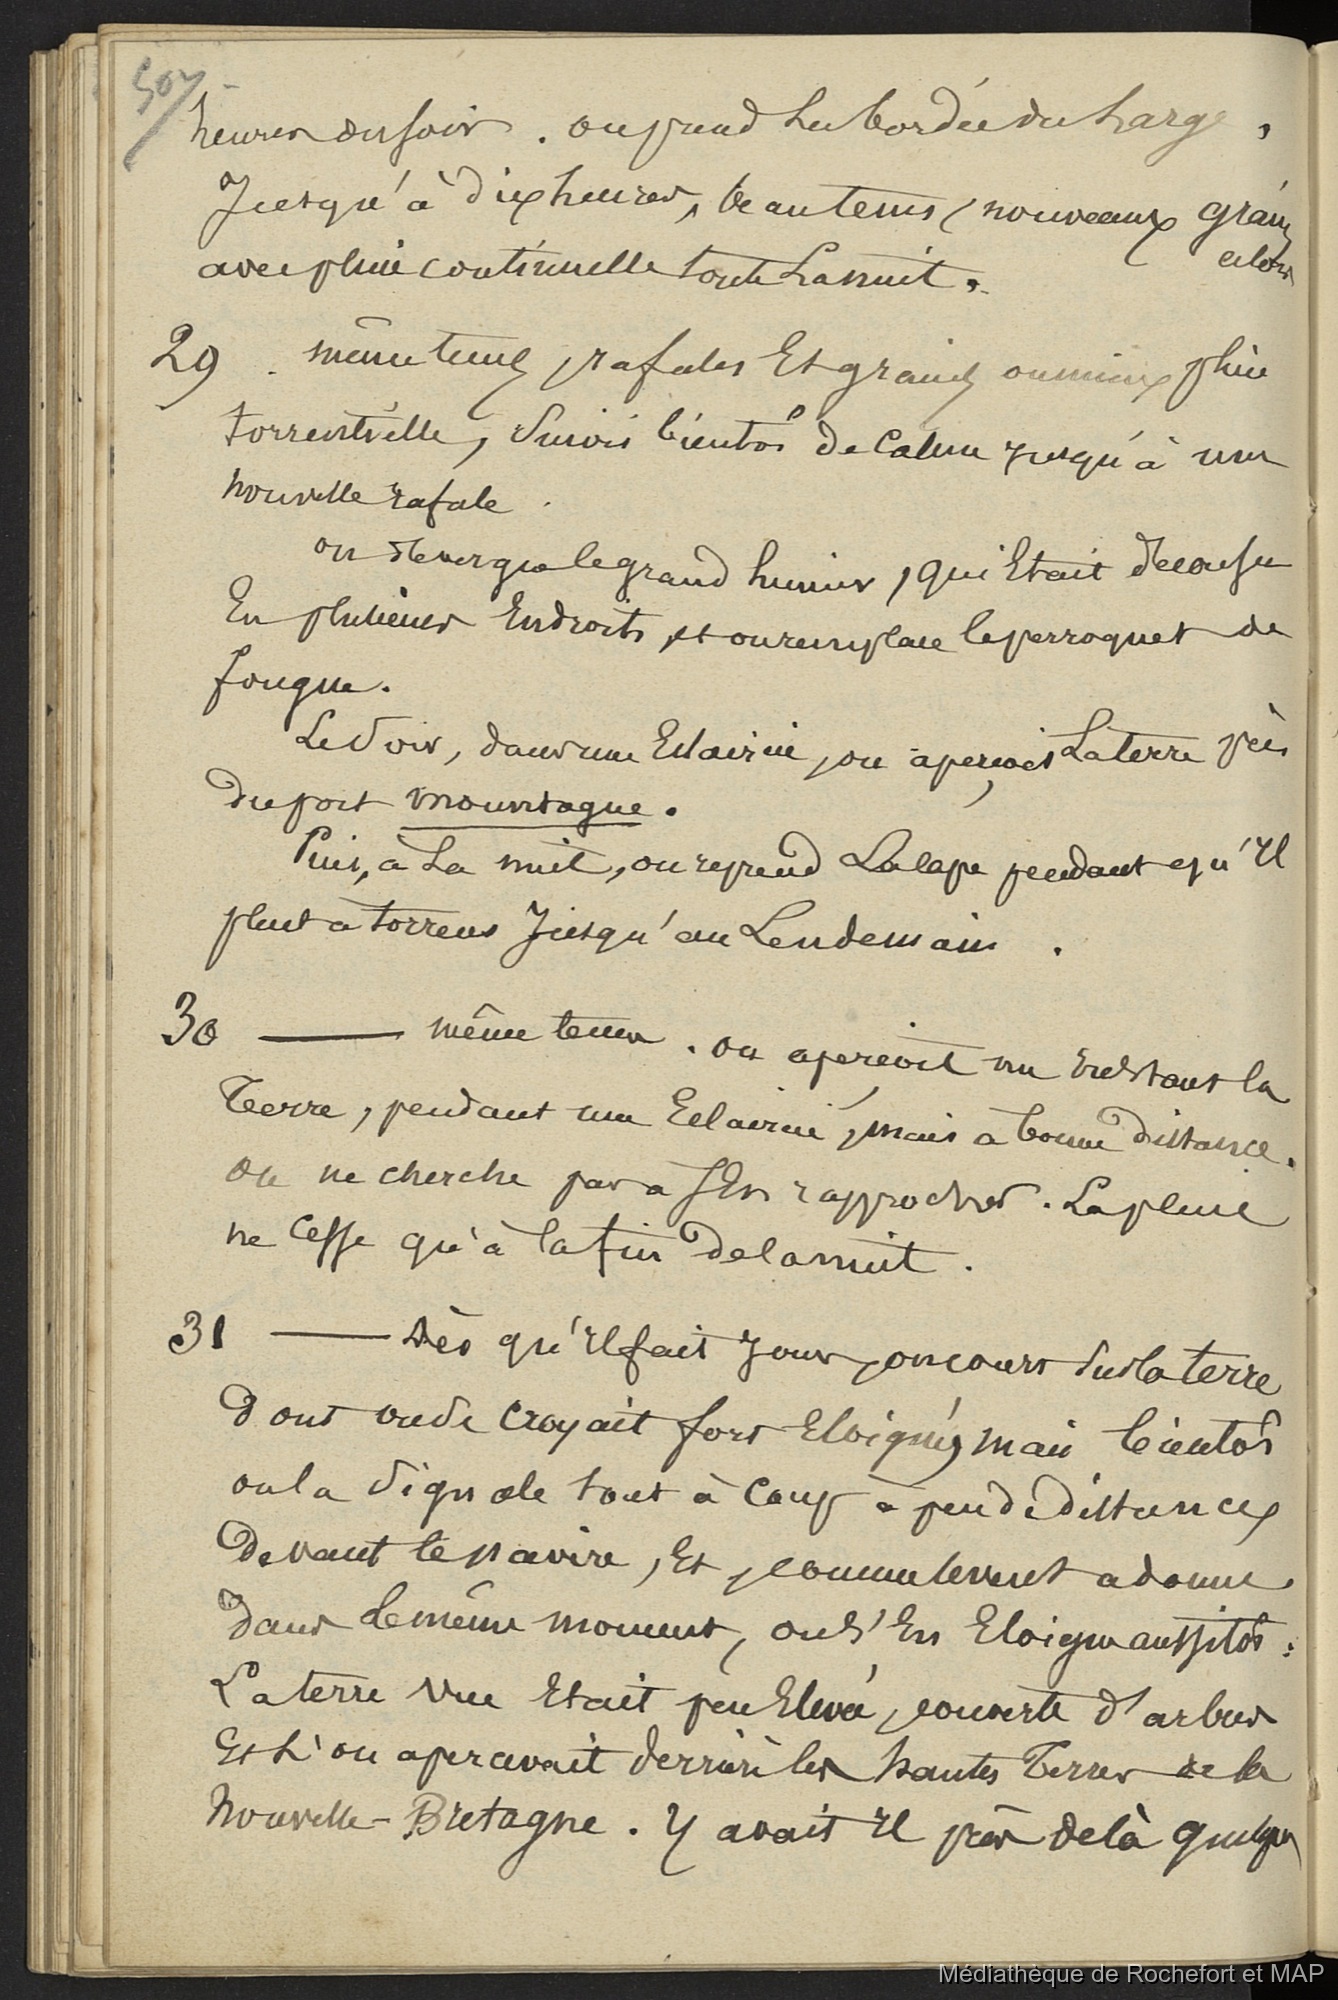 507
heures du soir. on prend la bordée du large,
Jusqu'à dix heures, beau tems, nouveaux grains
alors
avec pluie continuelle toute la nuit.
29. même tems, rafales Et grains pluie
torrentielle, suivis bientôt de calme jusqu'à une
nouvelle rafale.
on devergue le grand hunier, qui Etait decousu
En plusieurs Endroits, et on remplace le perroquet de
fougue.
Le soir, dans une Eclaircie, on aperçoit La terre près
du port montagne.
Puis, à La nuit, on reprend La cape pendant qu'Il
pleut à torrens Jusqu'au Lendemain.
30 — même tems. on aperçoit un Instant la
Terre, pendant une Eclaircie, mais à bonne distance.
on ne cherche pas à s'En rapprocher. La pluie
ne cesse qu'à la fin de la nuit.
31 — Dès qu'Il fait Jour, on court sur la terre
Dont on se croyait fort Eloigné, mais bientôt
on la signale tout à coup à peu de distance,
Devant le navire, Et, comme le vent a donné
Dans le même moment, on s'En Eloigne aussitôt:
La terre vue Etait peu Elevée, couverte d'arbres
Et L'on apercevait derrière les hautes Terres de la
Nouvelle-Bretagne. Y avait Il près de là quelques
Médiathèque de Rochefort et MAP